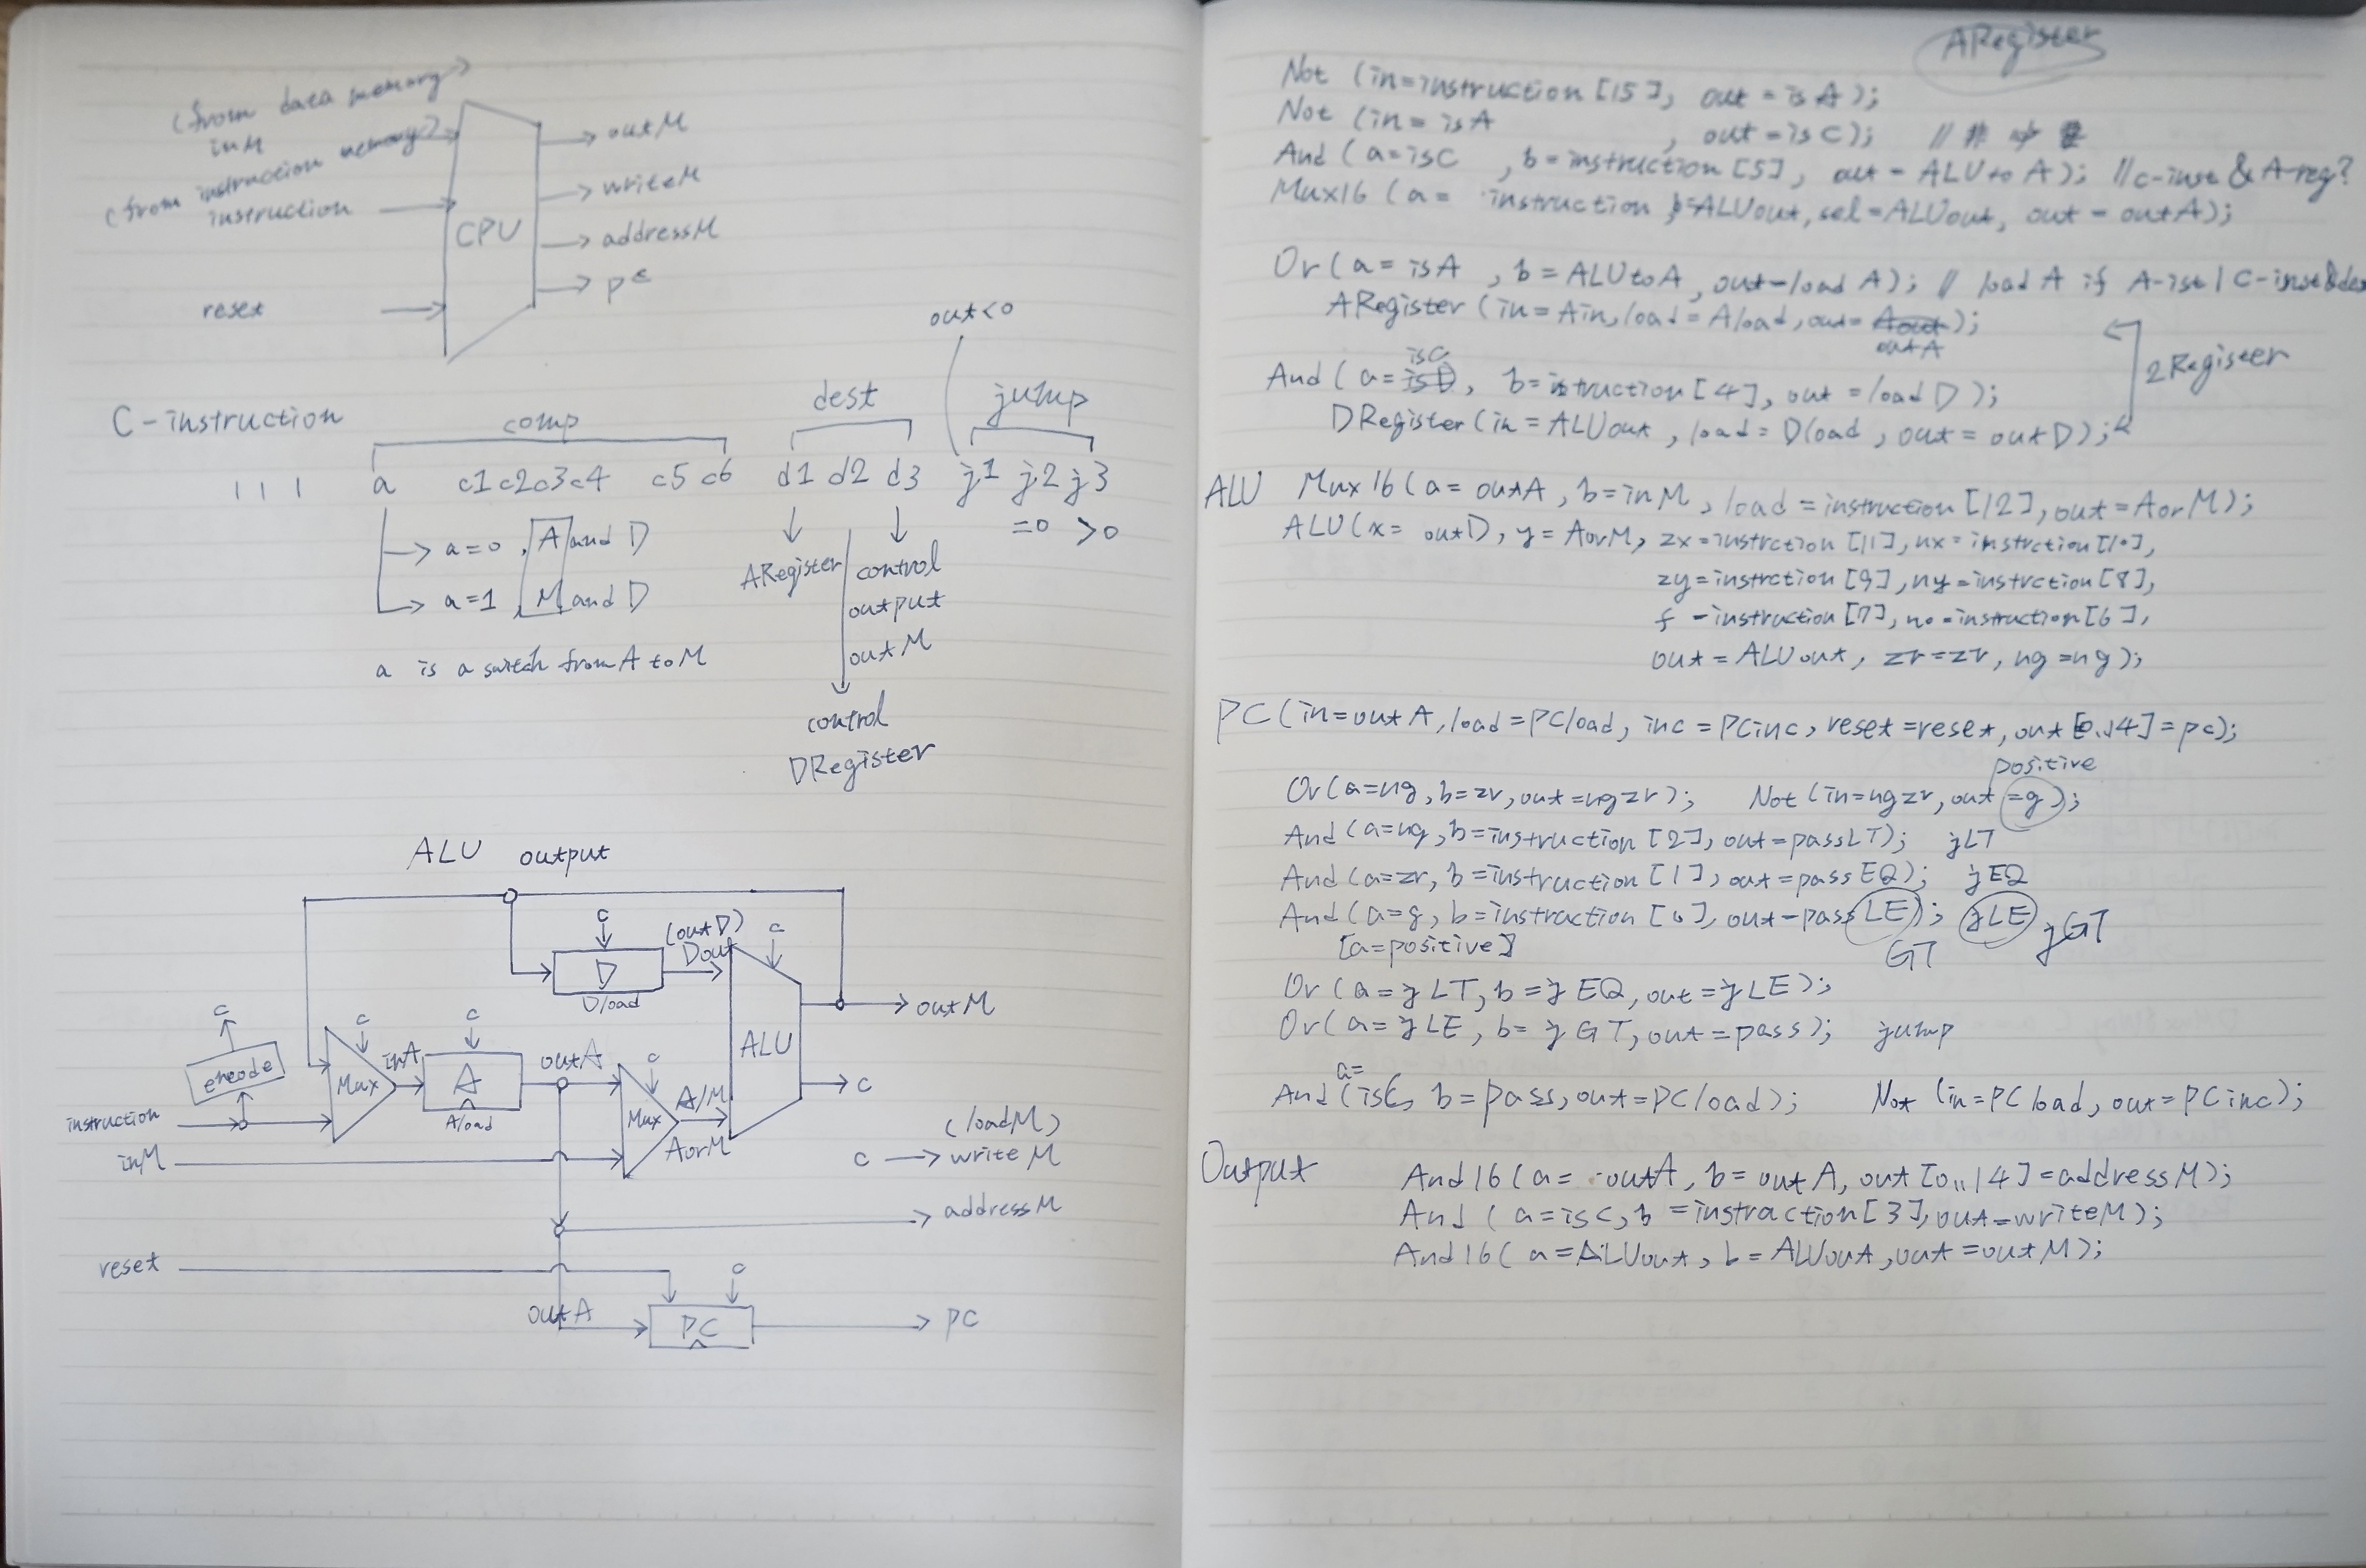 (from data memory)
inM
(from instruction memory)
instruction
reset
CPU
outM
writeM
addressM
pc
out<0
C-instruction
comp
dest
jump
1 1 1 a c1 c2 c3 c4 c5 c6 d1 d2 d3 j1 j2 j3
=0 >0
a=0, A and D
a=1, M and D
a is a switch from A to M
ARegister
control
output
outM
control
DRegister
ALU output
c
(outD)
Dout
c
D
Dload
outM
c
encode
c
Mux
inA
c
A
Aload
outA
c
Mux
A/M
AorM
ALU
c
instruction
inM
(loadM)
c → writeM
addressM
reset
c
outA
PC
pc
ARegister
Not (in=instruction [15], out = isA);
Not (in = isA , out = isC); //
And (a=isC , b=instruction [5], out = ALUtoA); //c-inst & A-reg?
Mux16 (a= instruction, b=ALUout, sel=ALUout, out = outA);
Or (a = isA , b = ALUtoA, out=load A); // load A if A-ist | C-inst&des
ARegister (in = Ain, load = Aload, out= Aout);
outA
isC
And (a= isD, b=istruction [4], out = load D);
DRegister (in = ALUout , load = Dload , out = outD);
2Register
ALU Mux16 (a= outA , b=inM , load = instruction [12], out=AorM);
ALU (x= outD, y= AorM, zx=instrction [11], nx= instrction [10],
zy=instrction [9], ny=instrction [8],
f =instruction [7], no=instruction [6],
out = ALUout, zr=zr, ng =ng);
PC (in=outA, load=PCload, inc = PCinc, reset =reset, out [0..14] = pc);
positive
Or (a=ng, b=zr, out=ngzr); Not (in=ngzr, out =g);
And (a=ng, b=instruction [2], out=passLT); jLT
And (a=zr, b=instruction [1], out=passEQ); jEQ
And (a=g, b=instraction [0], out=passLE); jLE jGT
[a=positive] GT
Or (a = jLT, b = jEQ, out =jLE);
Or (a= jLE, b= jGT, out =pass); jump
a=
And (isC, b=pass, out=PCload); Not (in=PCload, out=PCinc);
Output And16 (a= outA, b= outA, out [0..14] =addressM);
And (a=isC, b =instraction[3], out=writeM);
And16 (a=ALUout, b= ALUout, out =outM);